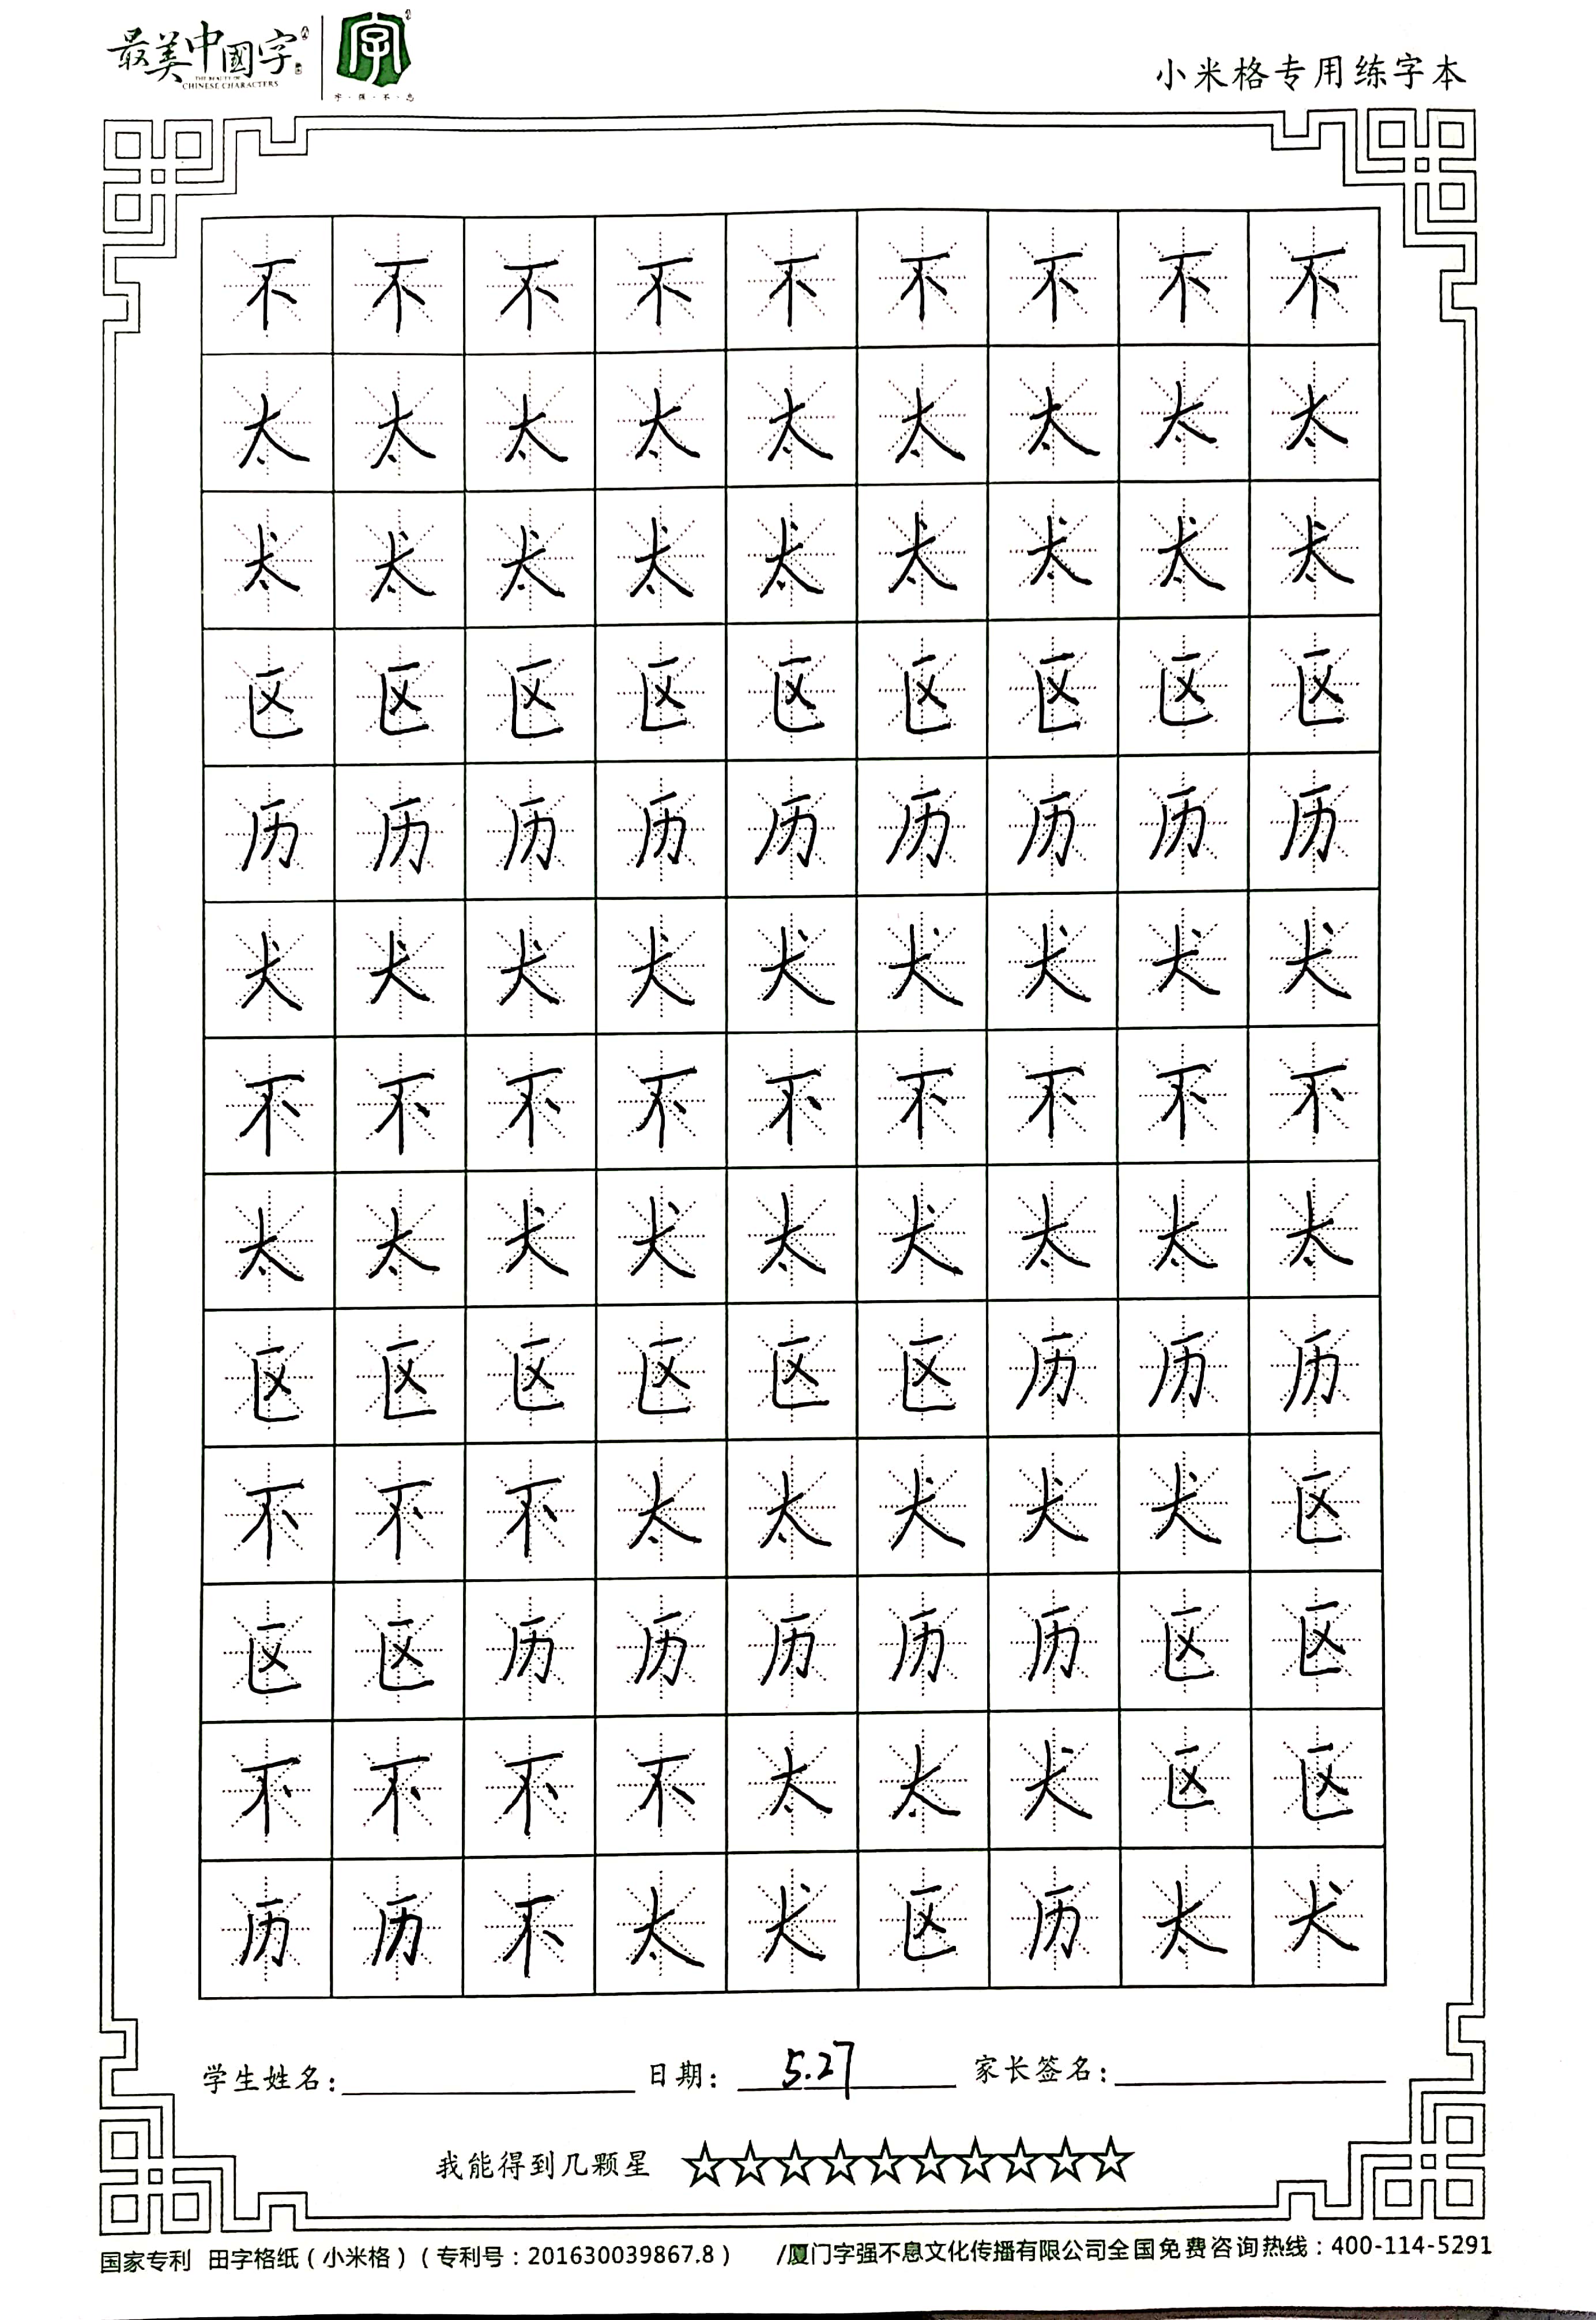 最美中國字
THE BEAUTY OF
CHINESE CHARACTERS
字
字·强·不·息
小米格专用练字本
不 不 不 不 不 不 不 不 不
太 太 太 太 太 太 太 太 太
太 太 太 太 太 太 太 太 太
区 区 区 区 区 区 区 区 区
历 历 历 历 历 历 历 历 历
犬 犬 犬 犬 犬 犬 犬 犬 犬
不 不 不 不 不 不 不 不 不
太 太 犬 犬 太 犬 太 太 太
区 区 区 区 区 区 历 历 历
不 不 不 太 太 犬 犬 犬 区
区 区 历 历 历 历 历 区 区
不 不 不 不 太 太 犬 区 区
历 历 不 太 犬 区 历 太 犬
学生姓名： 日期：5.27 家长签名：
我能得到几颗星 ☆☆☆☆☆☆☆☆☆☆
国家专利 田字格纸（小米格）（专利号：201630039867.8） /厦门字强不息文化传播有限公司全国免费咨询热线：400-114-5291